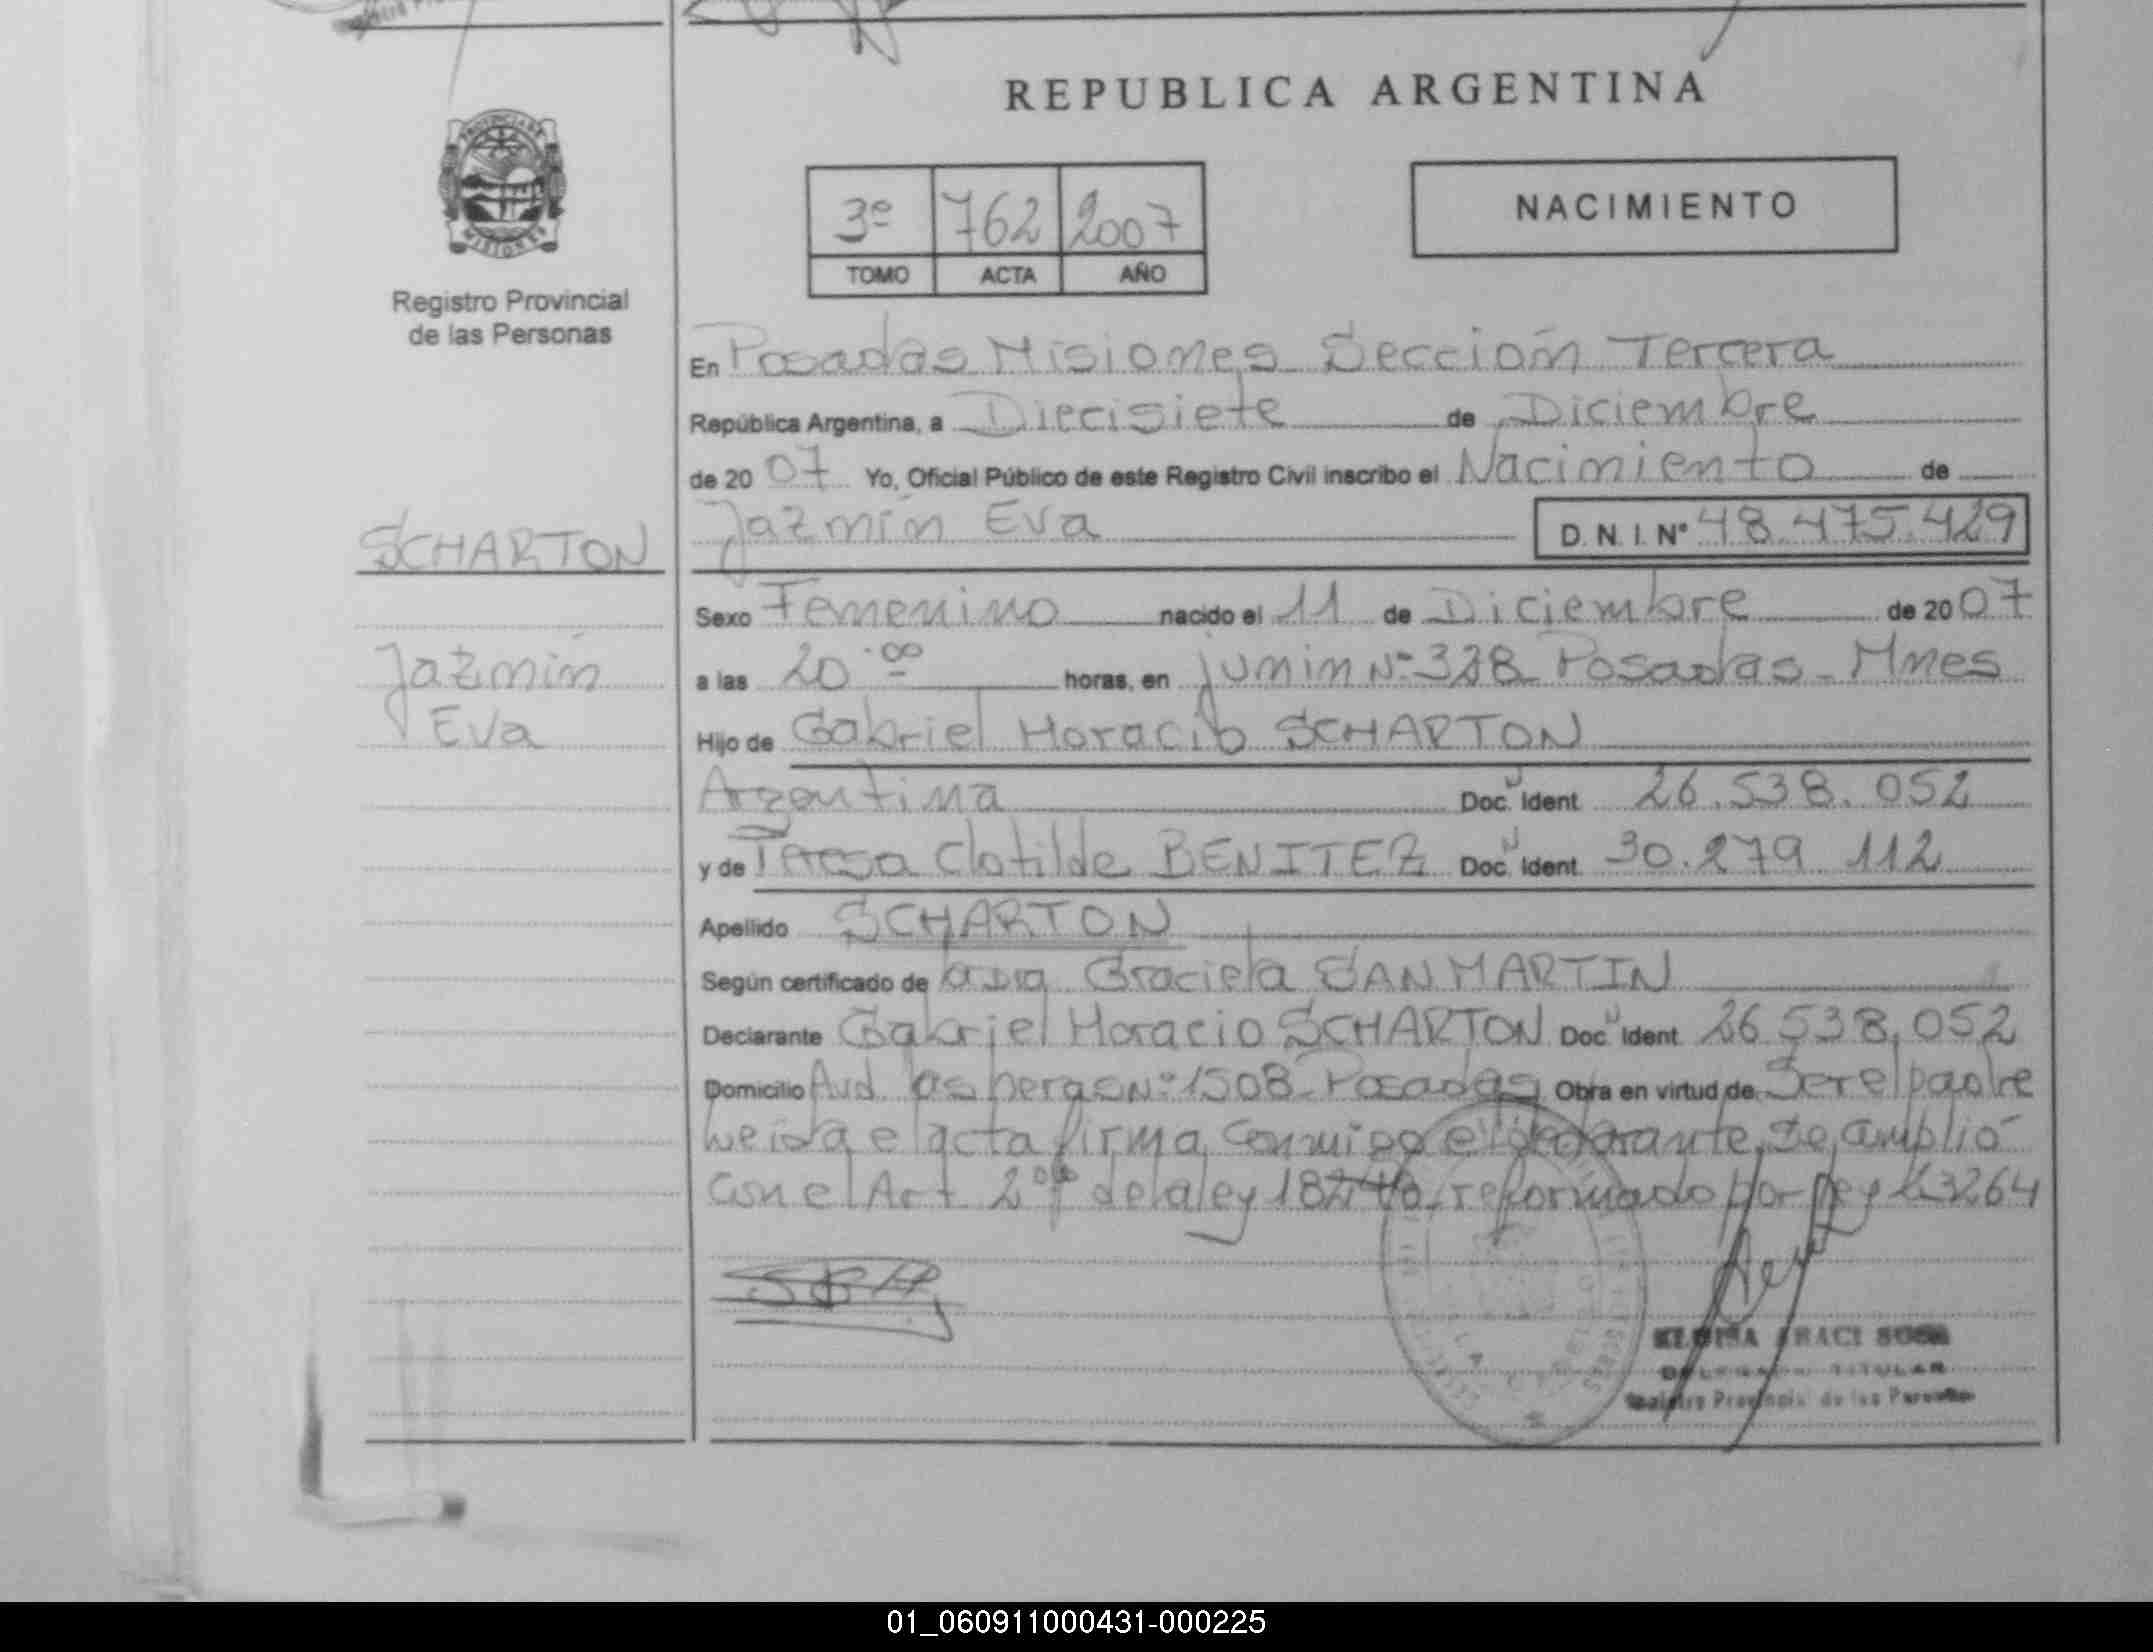 REPUBLICA ARGENTINA
PROVINCIA DE
MISIONES
Registro Provincial
de las Personas
3º 762 2007
TOMO ACTA AÑO
NACIMIENTO
En Posadas Misiones Sección Tercera
República Argentina, a Diecisiete de Diciembre
de 2007 Yo, Oficial Público de este Registro Civil inscribo el Nacimiento de
SCHARTON
Jazmín Eva D.N.I. Nº 48.475.429
Sexo Femenino nacido el 11 de Diciembre de 2007
Jazmín
a las 20.00 horas, en junin Nº 328 Posadas - Mnes
Eva
Hijo de Gabriel Horacio SCHARTON
Argentina Doc. Ident 26.538.052
y de Teresa Clotilde BENITEZ Doc. Ident. 30.279 112
Apellido SCHARTON
Según certificado de Graciela SANMARTIN
Declarante Gabriel Horacio SCHARTON Doc. Ident. 26.538.052
Domicilio Avd. las heras Nº 1508 - Posadas Obra en virtud de Ser el padre
leida el acta firma conmigo el declarante, Se amplió
con el Art 2 de la ley reformado por ley 23264
ARACI SOSA
TITULAR
Registro Provincial de las Personas
01_060911000431-000225